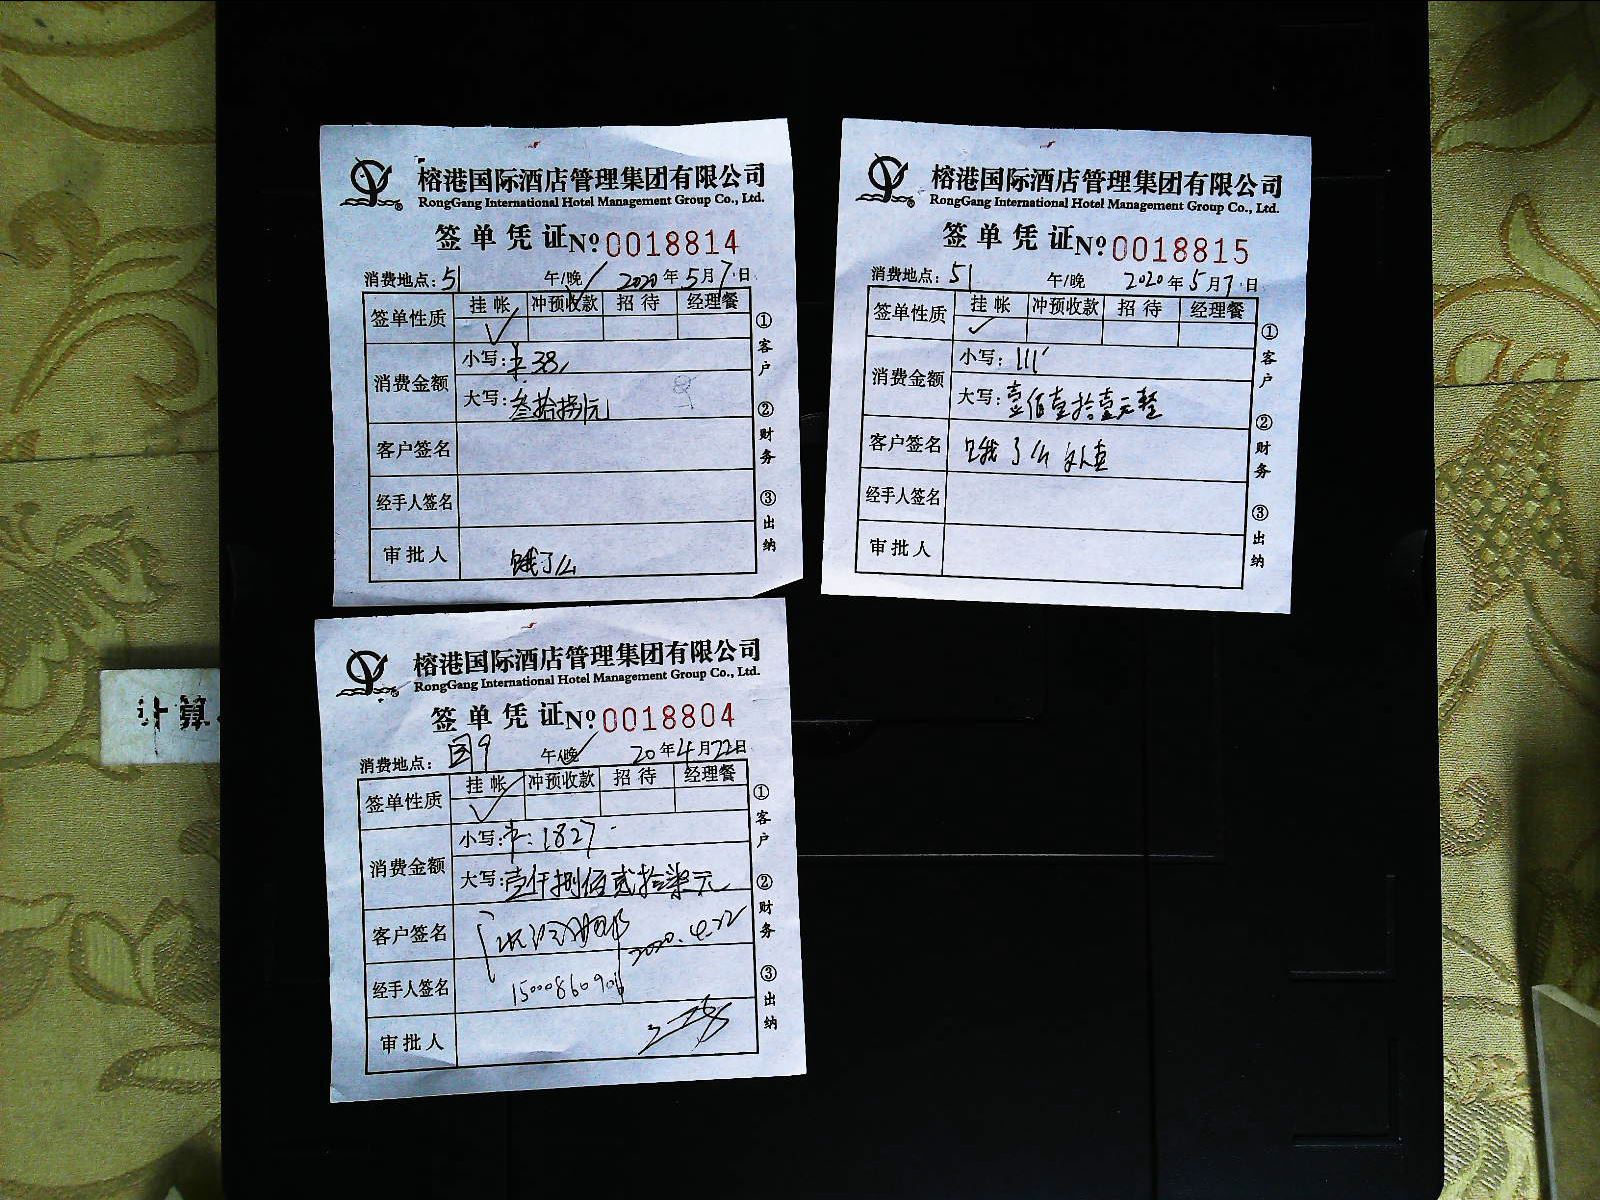 榕港国际酒店管理集团有限公司
RongGang International Hotel Management Group Co., Ltd.
签单凭证 Nº 0018814
消费地点：51 午/晚 2020年5月7日
签单性质 挂帐 冲预收款 招待 经理餐
消费金额 小写：¥38
大写：叁拾捌元
客户签名
经手人签名
审批人 饿了么
①客户 ②财务 ③出纳
榕港国际酒店管理集团有限公司
RongGang International Hotel Management Group Co., Ltd.
签单凭证 Nº 0018815
消费地点：51 午/晚 2020年5月7日
签单性质 挂帐 冲预收款 招待 经理餐
消费金额 小写：111
大写：壹佰壹拾壹元整
客户签名 饿了么
经手人签名
审批人
①客户 ②财务 ③出纳
榕港国际酒店管理集团有限公司
RongGang International Hotel Management Group Co., Ltd.
签单凭证 Nº 0018804
消费地点： 午/晚 20年4月22日
签单性质 挂帐 冲预收款 招待 经理餐
消费金额 小写：¥：1827
大写：壹仟捌佰贰拾柒元
客户签名 2020.4.22
经手人签名
审批人
①客户 ②财务 ③出纳
计算